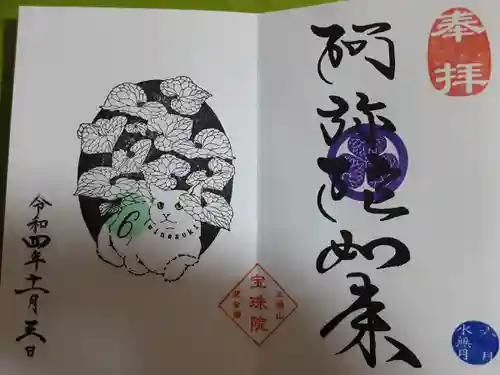 奉拝
阿弥陀如来
六月
水無月
宝珠院
6
minazuki
令和四年十一月三日